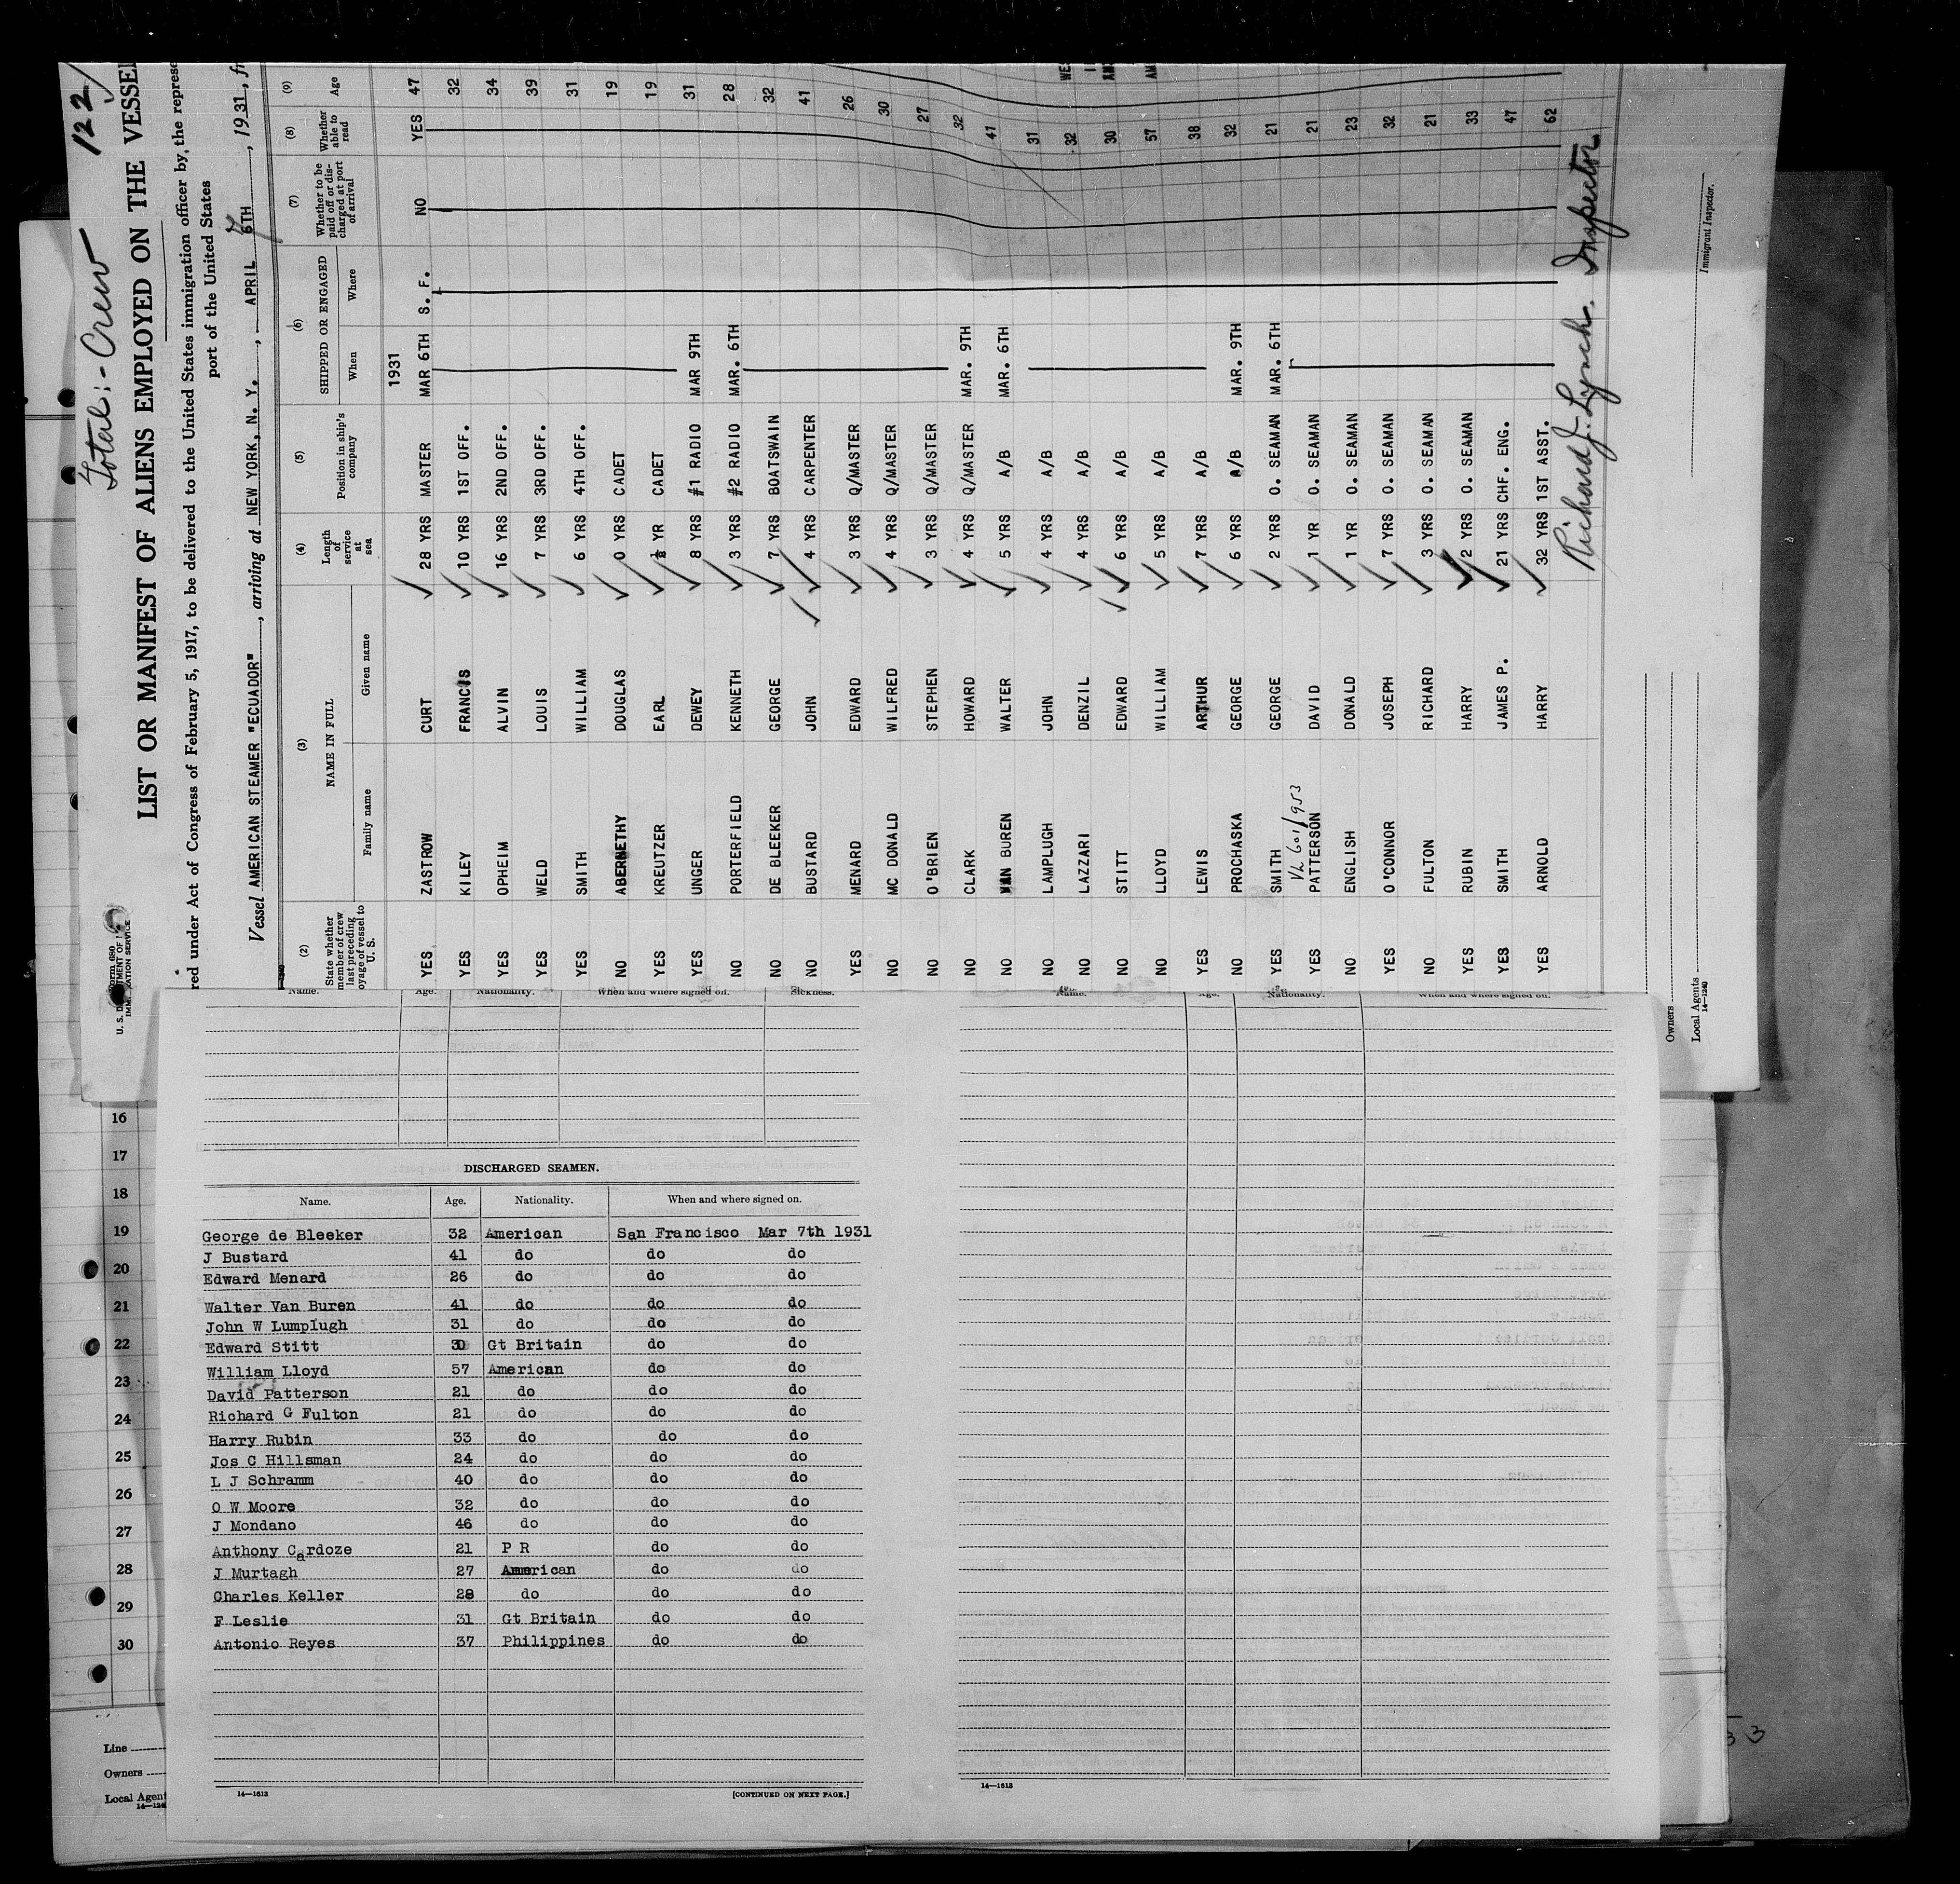 Total:- Crew 122
U. S. DEPARTMENT OF
IMMIGRATION SERVICE
LIST OR MANIFEST OF ALIENS EMPLOYED ON THE VESSEL
red under Act of Congress of February 5, 1917, to be delivered to the United States immigration officer by the represe
port of the United States
Vessel AMERICAN STEAMER "ECUADOR", arriving at NEW YORK, N. Y., APRIL 6TH 7, 1931, fr
(2) (3) (4) (5) (6) (7) (8) (9)
State whether member of crew last preceding voyage of vessel to U. S. NAME IN FULL Family name Given name Length of service at sea Position in ship's company SHIPPED OR ENGAGED When Where Whether to be paid off or discharged at port of arrival Whether able to read Age
1931
YES ZASTROW CURT 28 YRS MASTER MAR 6TH S. F. NO YES 47
YES KILEY FRANCIS 10 YRS 1ST OFF. 32
YES OPHEIM ALVIN 16 YRS 2ND OFF. 34
YES WELD LOUIS 7 YRS 3RD OFF. 39
YES SMITH WILLIAM 6 YRS 4TH OFF. 31
NO ABERNETHY DOUGLAS 0 YRS CADET 19
YES KREUTZER EARL ½ YR CADET 19
YES UNGER DEWEY 8 YRS #1 RADIO MAR 9TH 31
NO PORTERFIELD KENNETH 3 YRS #2 RADIO MAR. 6TH 28
NO DE BLEEKER GEORGE 7 YRS BOATSWAIN 32
NO BUSTARD JOHN 4 YRS CARPENTER 41
YES MENARD EDWARD 3 YRS Q/MASTER 26
NO MC DONALD WILFRED 4 YRS Q/MASTER 30
NO O'BRIEN STEPHEN 3 YRS Q/MASTER 27
NO CLARK HOWARD 4 YRS Q/MASTER MAR. 9TH 32
NO VAN BUREN WALTER 5 YRS A/B MAR. 6TH 41
NO LAMPLUGH JOHN 4 YRS A/B 31
NO LAZZARI DENZIL 4 YRS A/B 32
NO STITT EDWARD 6 YRS A/B 30
NO LLOYD WILLIAM 5 YRS A/B 57
YES LEWIS ARTHUR 7 YRS A/B 38
NO PROCHASKA GEORGE 6 YRS A/B MAR. 9TH 32
YES SMITH GEORGE 2 YRS O. SEAMAN MAR. 6TH 21
YES PATTERSON DAVID 1 YR O. SEAMAN 21
NO ENGLISH DONALD 1 YR O. SEAMAN 23
YES O'CONNOR JOSEPH 7 YRS O. SEAMAN 32
NO FULTON RICHARD 3 YRS O. SEAMAN 21
YES RUBIN HARRY 2 YRS O. SEAMAN 33
YES SMITH JAMES P. 21 YRS CHF. ENG. 47
YES ARNOLD HARRY 32 YRS 1ST ASST. 62
Richard J. Lynch. Inspector
Immigrant Inspector.
Owners
Local Agents
14—1240
Name. Age. Nationality. When and where signed on. Sickness.
Name. Age. Nationality. When and where signed on.
DISCHARGED SEAMEN.
Name. Age. Nationality. When and where signed on.
George de Bleeker 32 American San Francisco Mar 7th 1931
J Bustard 41 do do do
Edward Menard 26 do do do
Walter Van Buren 41 do do do
John W Lumplugh 31 do do do
Edward Stitt 30 Gt Britain do do
William Lloyd 57 American do do
David Patterson 21 do do do
Richard G Fulton 21 do do do
Harry Rubin 33 do do do
Jos C Hillsman 24 do do do
L J Schramm 40 do do do
O W Moore 32 do do do
J Mondano 46 do do do
Anthony Cardoze 21 P R do do
J Murtagh 27 American do do
Charles Keller 28 do do do
F Leslie 31 Gt Britain do do
Antonio Reyes 37 Philippines do do
14—1613 [CONTINUED ON NEXT PAGE.]
14—1613
16
17
18
19
20
21
22
23
24
25
26
27
28
29
30
Line
Owners
Local Agent